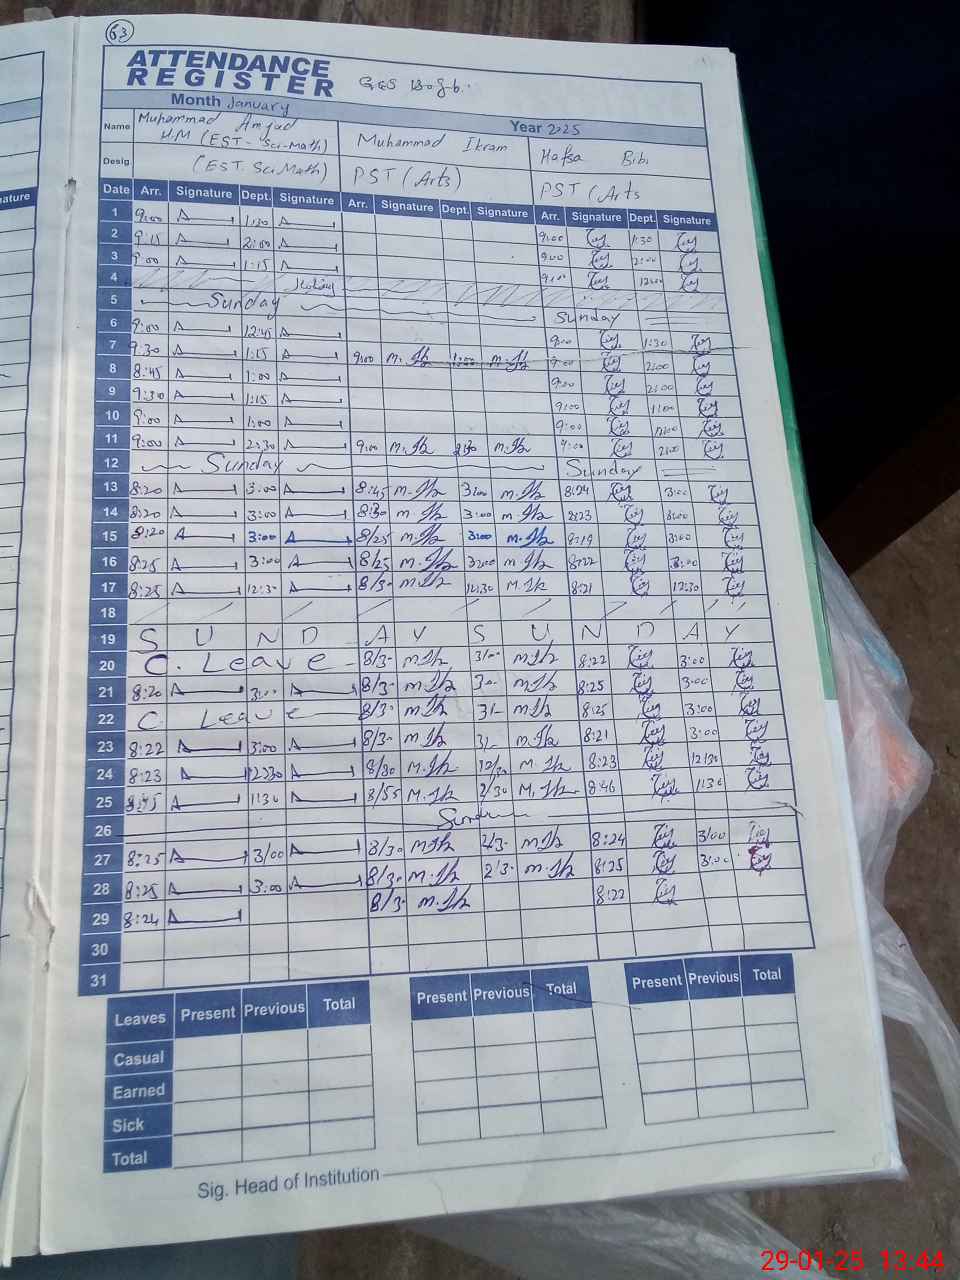 63
ATTENDANCE
REGISTER
Month January
Year 2025
Name Muhammad Amjad Muhammad Ikram Hafsa Bibi
H.M (EST-Sci-Math)
Desig. (EST. Sci Math) PST (Arts) PST (Arts
Date Arr. Signature Dept. Signature Arr. Signature Dept. Signature Arr. Signature Dept. Signature
1 9:00 1:30 9:00 1:30
2 9:15 2:00 9:00 2:00
3 9:00 1:15 9:00 12:00
4 Holiday
5 Sunday Sunday
6 9:00 12:45 9:00 1:30
7 9:30 1:15 9:00 1:00 9:00 2:00
8 8:45 1:00 9:00 2:00
9 9:30 1:15 9:00 1:00
10 9:00 1:00 9:00
11 9:00 2:30 9:00 2:30 9:00 2:00
12 Sunday Sunday
13 8:20 3:00 8:45 3:00 8:24 3:00
14 8:20 3:00 8:30 3:00 8:23 3:00
15 8:20 3:00 8/25 3:00 8:19 3:00
16 8:25 3:00 8/25 3:00 8:22 3:00
17 8:25 12:30 8/30 12:30 8:21 12:30
18
19 S U N D A Y S U N D A Y
20 C. Leave 8/3- 3/00 8:22 3:00
21 8:20 3:00 8/3- 3:00 8:25 3:00
22 C. Leave 8/3- 3/- 8:25 3:00
23 8:22 3:00 8/3- 3/- 8:21 3:00
24 8:23 12:30 8/30 12/30 8:23 12:30
25 8:45 1:30 8/55 2/30 8:46 1:30
26 Sunday
27 8:25 3/00 8/30 2/3- 8:24 3/00
28 8:25 3:00 8/30 2/3- 8:25 3:00
29 8:24 8/3- 8:22
30
31
Leaves Present Previous Total Present Previous Total Present Previous Total
Casual
Earned
Sick
Total
Sig. Head of Institution
29-01-25 13:44